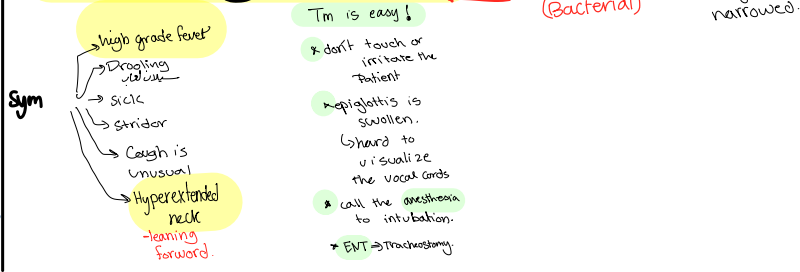 (Bacterial)
narrowed.
Sym
high grade fever
Drooling
Sick
Stridor
Cough is
unusual
Hyperextended
neck
-leaning
forword.
Tm is easy!
* don't touch or
irritate the
Patient
* epiglottis is
swollen.
↳ hard to
visualize
the vocal cords
* call the anesthesia
to intubation.
* ENT → Tracheostomy.